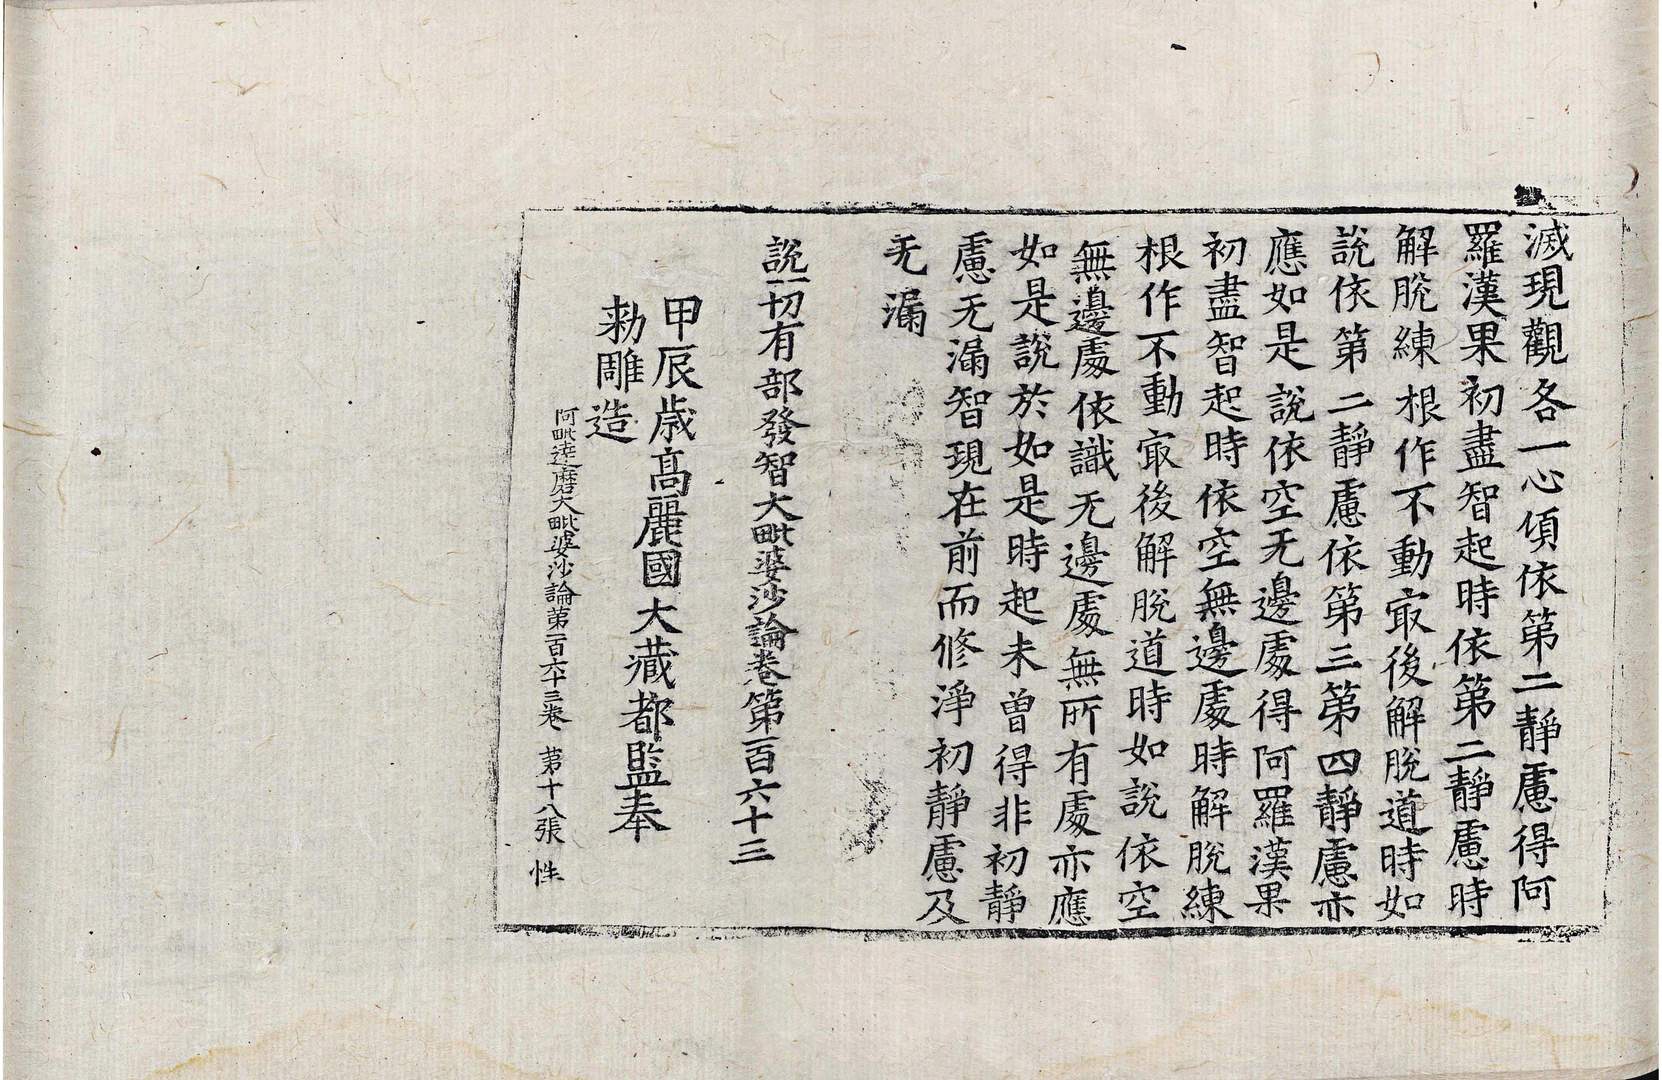 滅現觀各一心頃依第二靜慮得阿
羅漢果初盡智起時依第二靜慮時
解脫練根作不動㝡後解脫道時如
說依第二靜慮依第三第四靜慮亦
應如是說依空无邊處得阿羅漢果
初盡智起時依空無邊處時解脫練
根作不動㝡後解脫道時如說依空
無邊處依識无邊處無所有處亦應
如是說於如是時起未曾得非初靜
慮无漏智現在前而修淨初靜慮及
无漏
說一切有部發智大毗婆沙論卷第一百六十三
甲辰歳高麗國大藏都監奉
勑雕造
阿毗達磨大毗婆沙論第一百六十三卷 第十八張 性